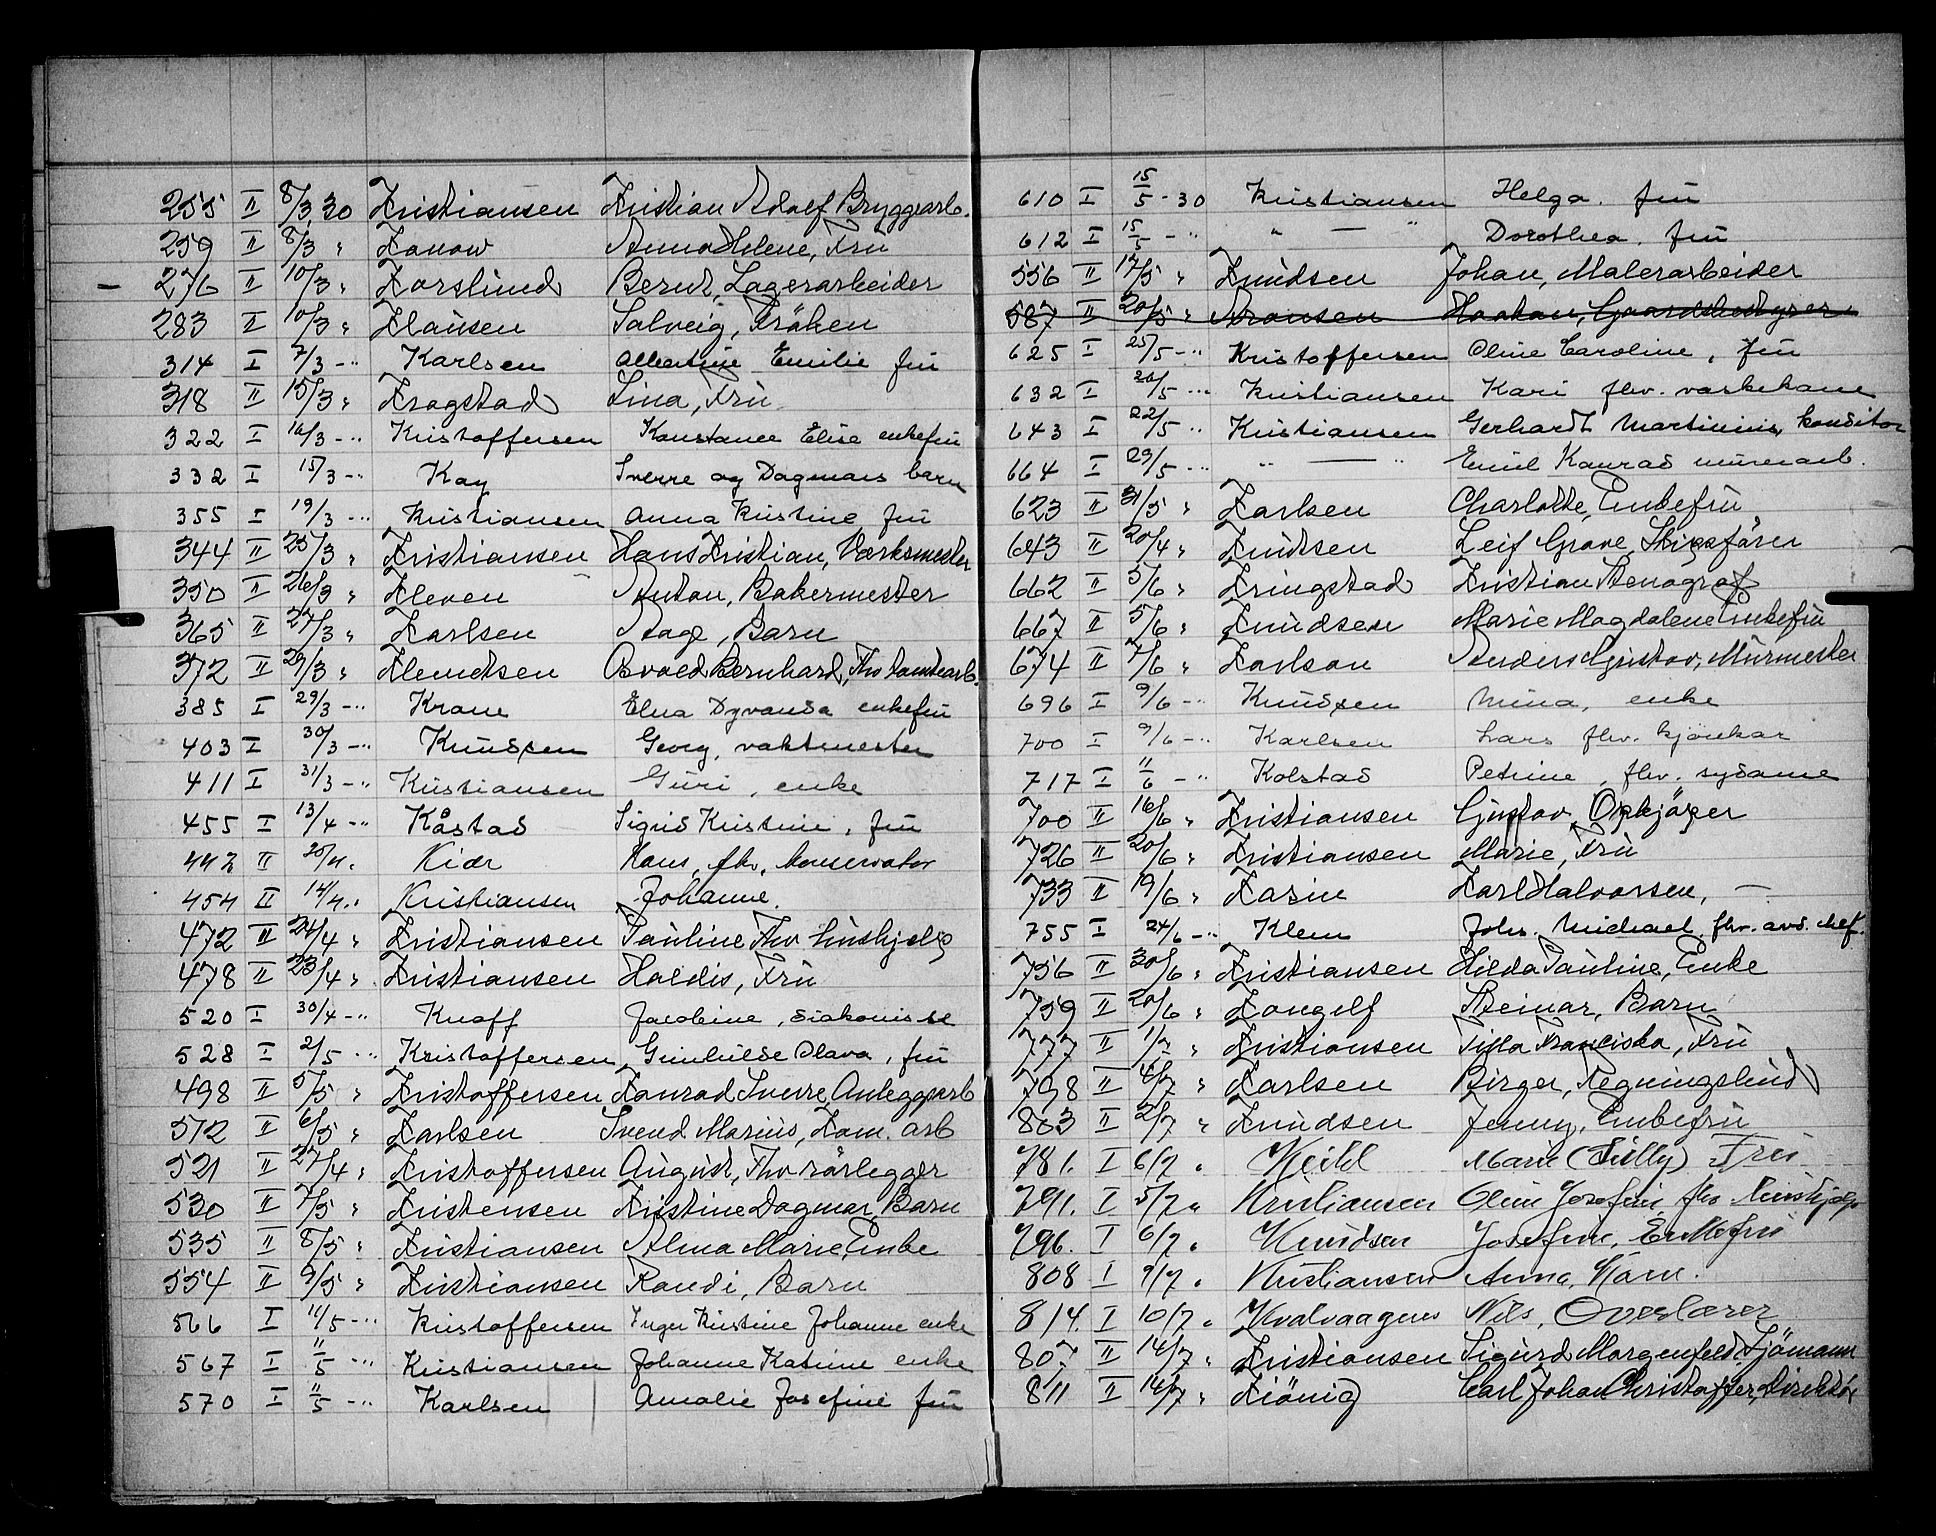 255 II 8/3 30 Kristiansen Kristian Adolf Bryggearb.
259 II 8/3 " Konow Anna Helene, Fru
– 276 II 10/3 " Korslund Bernt, Lagerarbeider
283 II 10/3 " Klausen Solveig, Fröken
314 I 7/3 -" Karlsen Albertine Emilie fru
318 II 15/3 " Krogstad Lina, Fru
322 I 16/3 -" Kristoffersen Konstance Elise enkefru
332 I 15/3 -" Kay Sverre og Dagmars barn
355 I 19/3 -" Kristiansen Anna Kristine fru
344 II 25/3 " Kristiansen Hans Kristian, Værksmester
350 II 26/3 " Kleven Anton, Bakermester
365 II 27/3 " Karlsen Aage, Barn
372 II 29/3 " Klemetsen Osvald Bernhard, Fhv
385 I 29/3 -" Krane Elna Dyvanda enkefru
403 I 30/3 -" Knudsen Georg, vaktmester
411 I 31/3 -" Kristiansen Guri, enke
455 I 13/4 -" Kåstad Sigrid Kristine, fru
442 II 20/4. Kiær Hans, fhv. konservator
454 II 14/4." Kristiansen Johanne.
472 II 24/4 " Kristiansen Pauline Fhv hushjelp
478 II 23/4 " Kristiansen Haldis, Fru
520 I 30/4 -" Knoff Jacobine, diakonisse
528 I 2/5 -" Kristoffersen Gunhilde Olava, fru
498 II 5/5 " Kristoffersen Konrad Sverre, Anleggsarb
512 II 6/5 " Karlsen Svend Marius, Kom. arb
521 II 27/4 " Kristoffersen August, Fhv rörlegger
530 II 7/5 " Kristensen Kristine Dagmar, Barn
535 II 8/5 " Kristiansen Alma Marie Enke
554 II 9/5 " Kristiansen Randi, Barn
566 I 11/5 -" Kristoffersen Inger Kristine Johanne enke
567 I 11/5 -" Kristiansen Johanne Katrine enke
570 I 11/5 -" Karlsen Amalie Josefine fru
610 I 15/5 - 30 Kristiansen Helga. fru
612 I 15/5 -" " — " Dorothea. fru
556 II 17/5 " Knudsen Johan, Malerarbeider
587 II 20/5 " Aronsen Haakon, Gaardsbestyrer
625 I 25/5 -" Kristoffersen Oline Caroline, fru
632 I 20/5 -" Kristiansen Kari fhv. vaskekone
643 I 22/5 -" Kristiansen Gerhardt Martinius, konditor
664 I 29/5 -" " — " Emil Konrad murerarb.
623 II 31/5 " Karlsen Charlotte, Enkefru
643 II 20/4 " Knutsen Leif Grave, Skipsförer
662 II 5/6 " Kringstad Kristian Stenograf
667 II 5/6 " Knudsen Marie Magdalene Enkefru
674 II 7/6 " Karlson Anders Gustav, Murmester
696 I 9/6 -" Knudsen Mina, enke
700 I 9/6 -" Karlsen Lars fhv. kjörekar
717 I 11/6 -" Kolstad Petrine, fhv. sydame
700 II 16/6 " Kristiansen Gustav, Opkjöper
726 II 20/6 " Kristiansen Marie, Fru
733 II 19/6 " Kasin Karl Halvorsen, —
755 I 24/6 -" Klem Johs. Michael. fhv. avd. chef.
756 II 30/6 " Kristiansen Hilda Pauline, Enke
759 II 20/6 " Kongelf Steinar, Barn
777 II 1/7 " Kristiansen Tilla Franciska, Fru
798 II 4/7 " Karlsen Birger, Regningsbud
803 II 2/7 " Knudsen Jenny, Enkefru
781. I 6/7 " Keihl Marie (Tilly) Fru
791. I 5/7 " Kristiansen Oline Josefine, fhv hushjelp
796. I 6/7 " Knudsen Josefine, Enkefru
808 I 9/7 " Kristiansen Anne, Barn.
814. I 10/7 " Kvalvaagnes Nils, Overlærer
807 II 14/7 " Kristiansen Sigurd Morgenfeld, Sjömann
811 II 14/7 " Kiönig Carl Johan Christoffer, Direktör